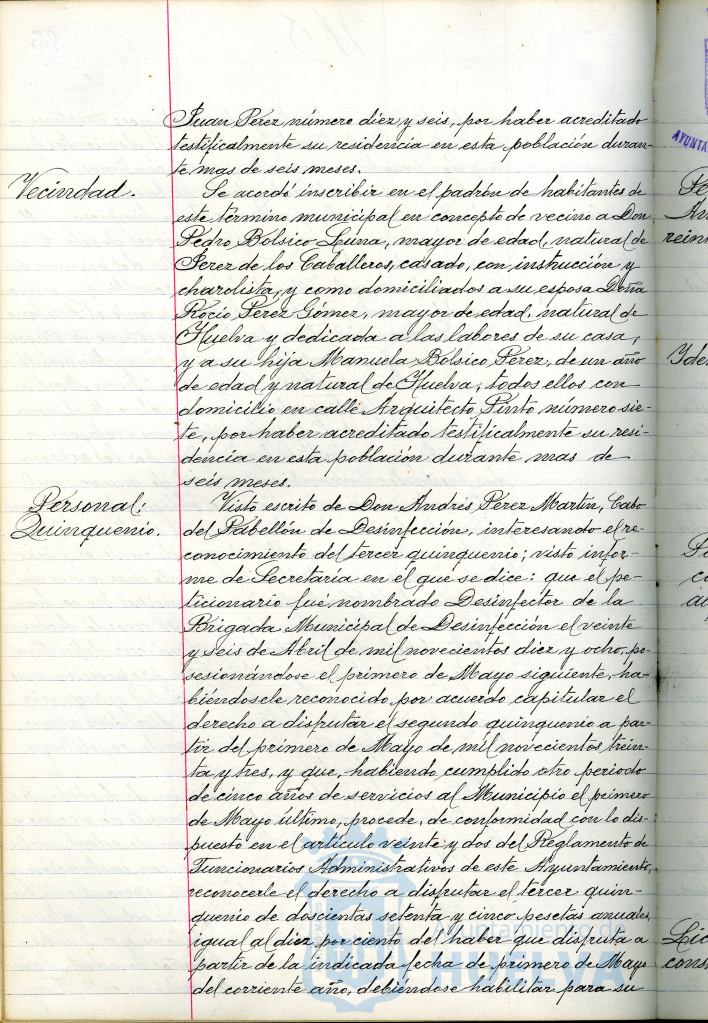 Juan Pérez número diez y seis, por haber acreditado
testificalmente su residencia en esta población duran-
te mas de seis meses.
Vecindad.
Se acordó inscribir en el padrón de habitantes de
este término municipal en concepto de vecino a Don
Pedro Bolsico Luna, mayor de edad, natural de
Jerez de los Caballeros, casado, con instrucción y
charolista, y como domiciliados a su esposa Doña
Rocío Pérez Gómez, mayor de edad, natural de
Huelva y dedicada a las labores de su casa,
y a su hija Manuela Bolsico Pérez, de un año
de edad y natural de Huelva, todos ellos con
domicilio en calle Arquitecto Pinto número sie-
te, por haber acreditado testificalmente su resi-
dencia en esta población durante mas de
seis meses.
Personal:
Quinquenio.
Visto escrito de Don Andrés Pérez Martín, Cabo
del Pabellón de Desinfección, interesando el re-
conocimiento del tercer quinquenio; visto infor-
me de Secretaría en el que se dice: que el pe-
ticionario fué nombrado Desinfector de la
Brigada Municipal de Desinfección el veinte
y seis de Abril de mil novecientos diez y ocho, po-
sesionándose el primero de Mayo siguiente, ha-
biéndosele reconocido por acuerdo capitular el
derecho a disfrutar el segundo quinquenio a par-
tir del primero de Mayo de mil novecientos trein-
ta y tres, y que, habiendo cumplido otro periodo
de cinco años de servicios al Municipio el primero
de Mayo último, procede, de conformidad con lo dis-
puesto en el artículo veinte y dos del Reglamento de
Funcionarios Administrativos de este Ayuntamiento,
reconocerle el derecho a disfrutar el tercer quin-
quenio de doscientas setenta y cinco pesetas anuales,
igual al diez por ciento del haber que disfruta a
partir de la indicada fecha de primero de Mayo
del corriente año, debiéndose habilitar para su
Ayuntamiento de
HUELVA